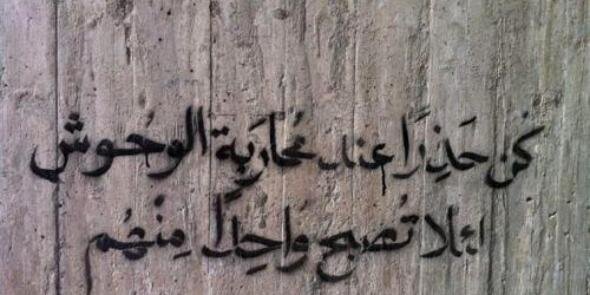 كُن حَذِرًا عند مُحارَبة الوحُوش
لئلا تُصبح وَاحِدًا مِنْهُم